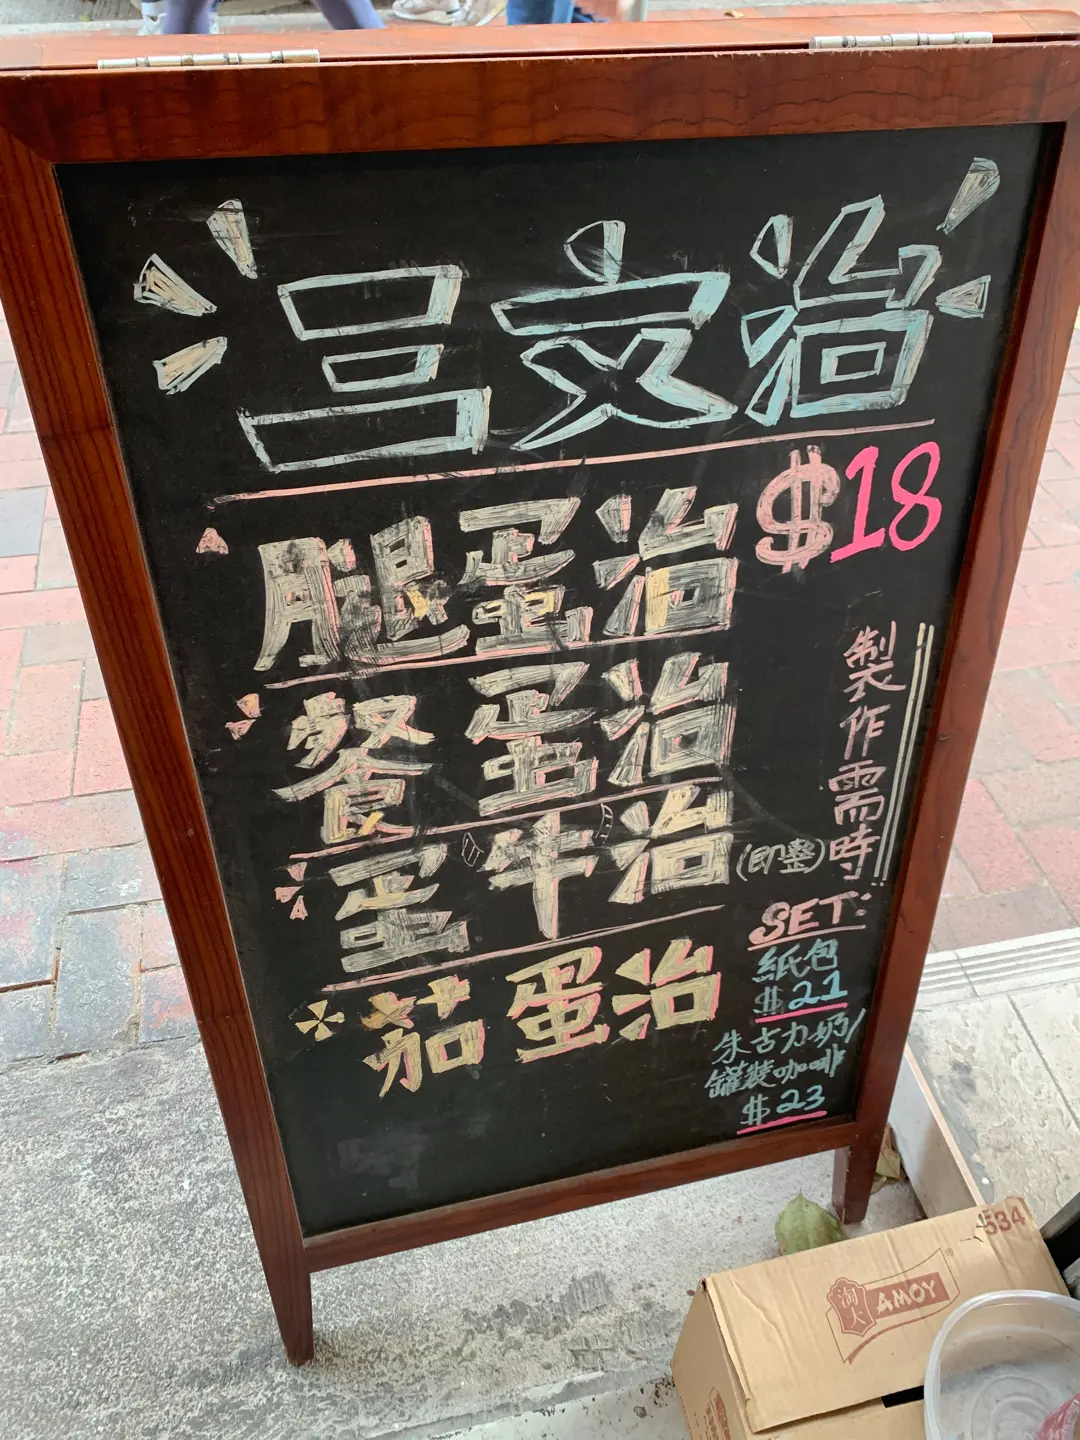 三文治
$18
腿蛋治
餐蛋治
蛋牛治
茄蛋治
製作需時
(即整)
SET:
紙包
$21
朱古力奶/
罐裝咖啡
$23
534
淘大
AMOY